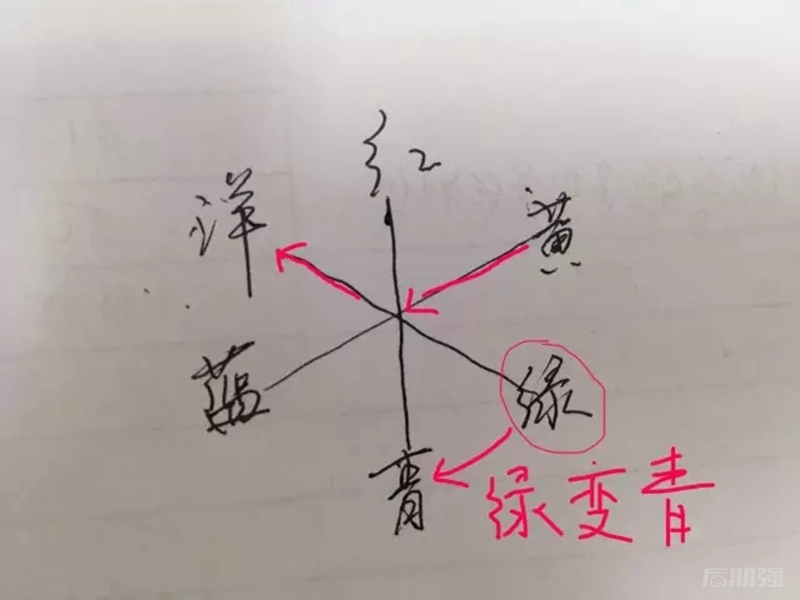 红
洋
黄
蓝
绿
青
绿变青
后期强